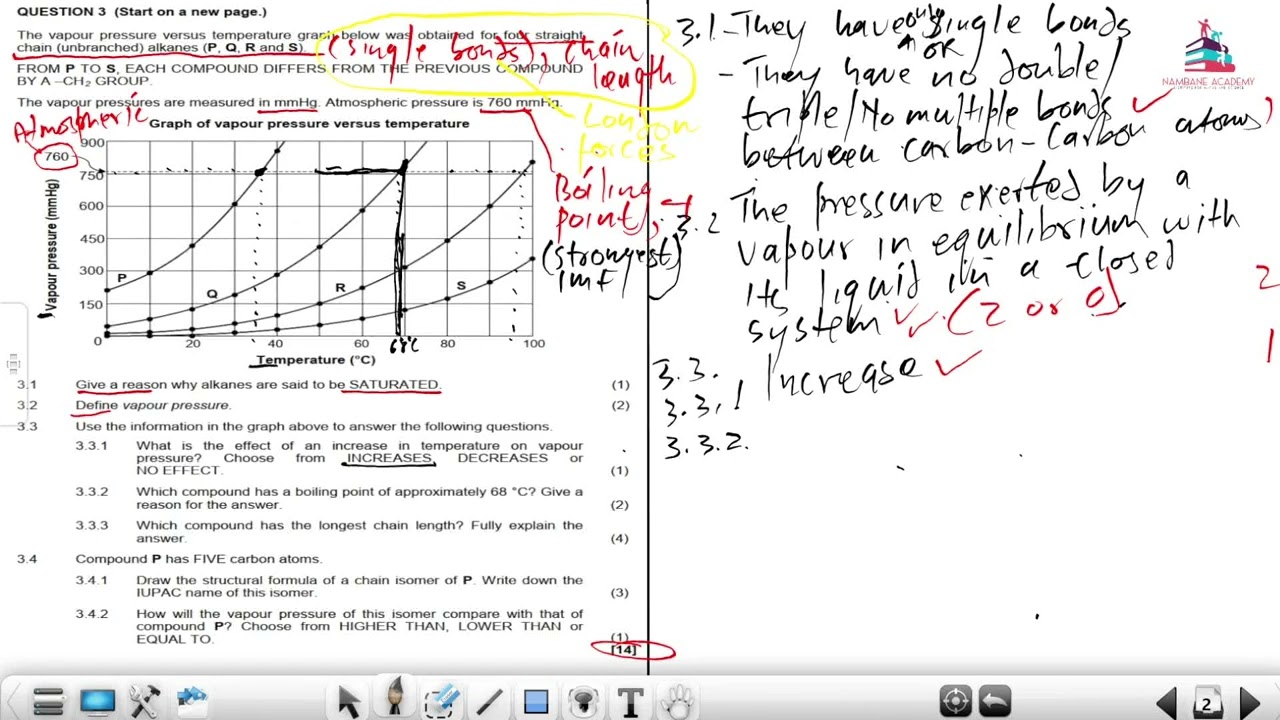 QUESTION 3 (Start on a new page.)
The vapour pressure versus temperature graph below was obtained for four straight
chain (unbranched) alkanes (P, Q, R and S).
(single bonds), chain
length
FROM P TO S, EACH COMPOUND DIFFERS FROM THE PREVIOUS COMPOUND
BY A –CH₂ GROUP.
The vapour pressures are measured in mmHg. Atmospheric pressure is 760 mmHg.
London
forces
Atmospheric
Graph of vapour pressure versus temperature
Vapour pressure (mmHg)
900
760
750
600
450
300
150
0
P
Q
R
S
0
20
40
60
68°C
80
100
Temperature (°C)
Boiling
point
(strongest)
imf
3.1 Give a reason why alkanes are said to be SATURATED. (1)
3.2 Define vapour pressure. (2)
3.3 Use the information in the graph above to answer the following questions.
3.3.1 What is the effect of an increase in temperature on vapour
pressure? Choose from INCREASES, DECREASES or
NO EFFECT. (1)
3.3.2 Which compound has a boiling point of approximately 68 °C? Give a
reason for the answer. (2)
3.3.3 Which compound has the longest chain length? Fully explain the
answer. (4)
3.4 Compound P has FIVE carbon atoms.
3.4.1 Draw the structural formula of a chain isomer of P. Write down the
IUPAC name of this isomer. (3)
3.4.2 How will the vapour pressure of this isomer compare with that of
compound P? Choose from HIGHER THAN, LOWER THAN or
EQUAL TO. (1)
[14]
3.1 - They have only single bonds
OR
- They have no double/
triple/No multiple bonds
between carbon-carbon atoms
3.2 The pressure exerted by a
vapour in equilibrium with
its liquid in a closed
system (2 or 0)
2
1
3.3.
3.3.1 Increase
3.3.2.
NAMBANE ACADEMY
2